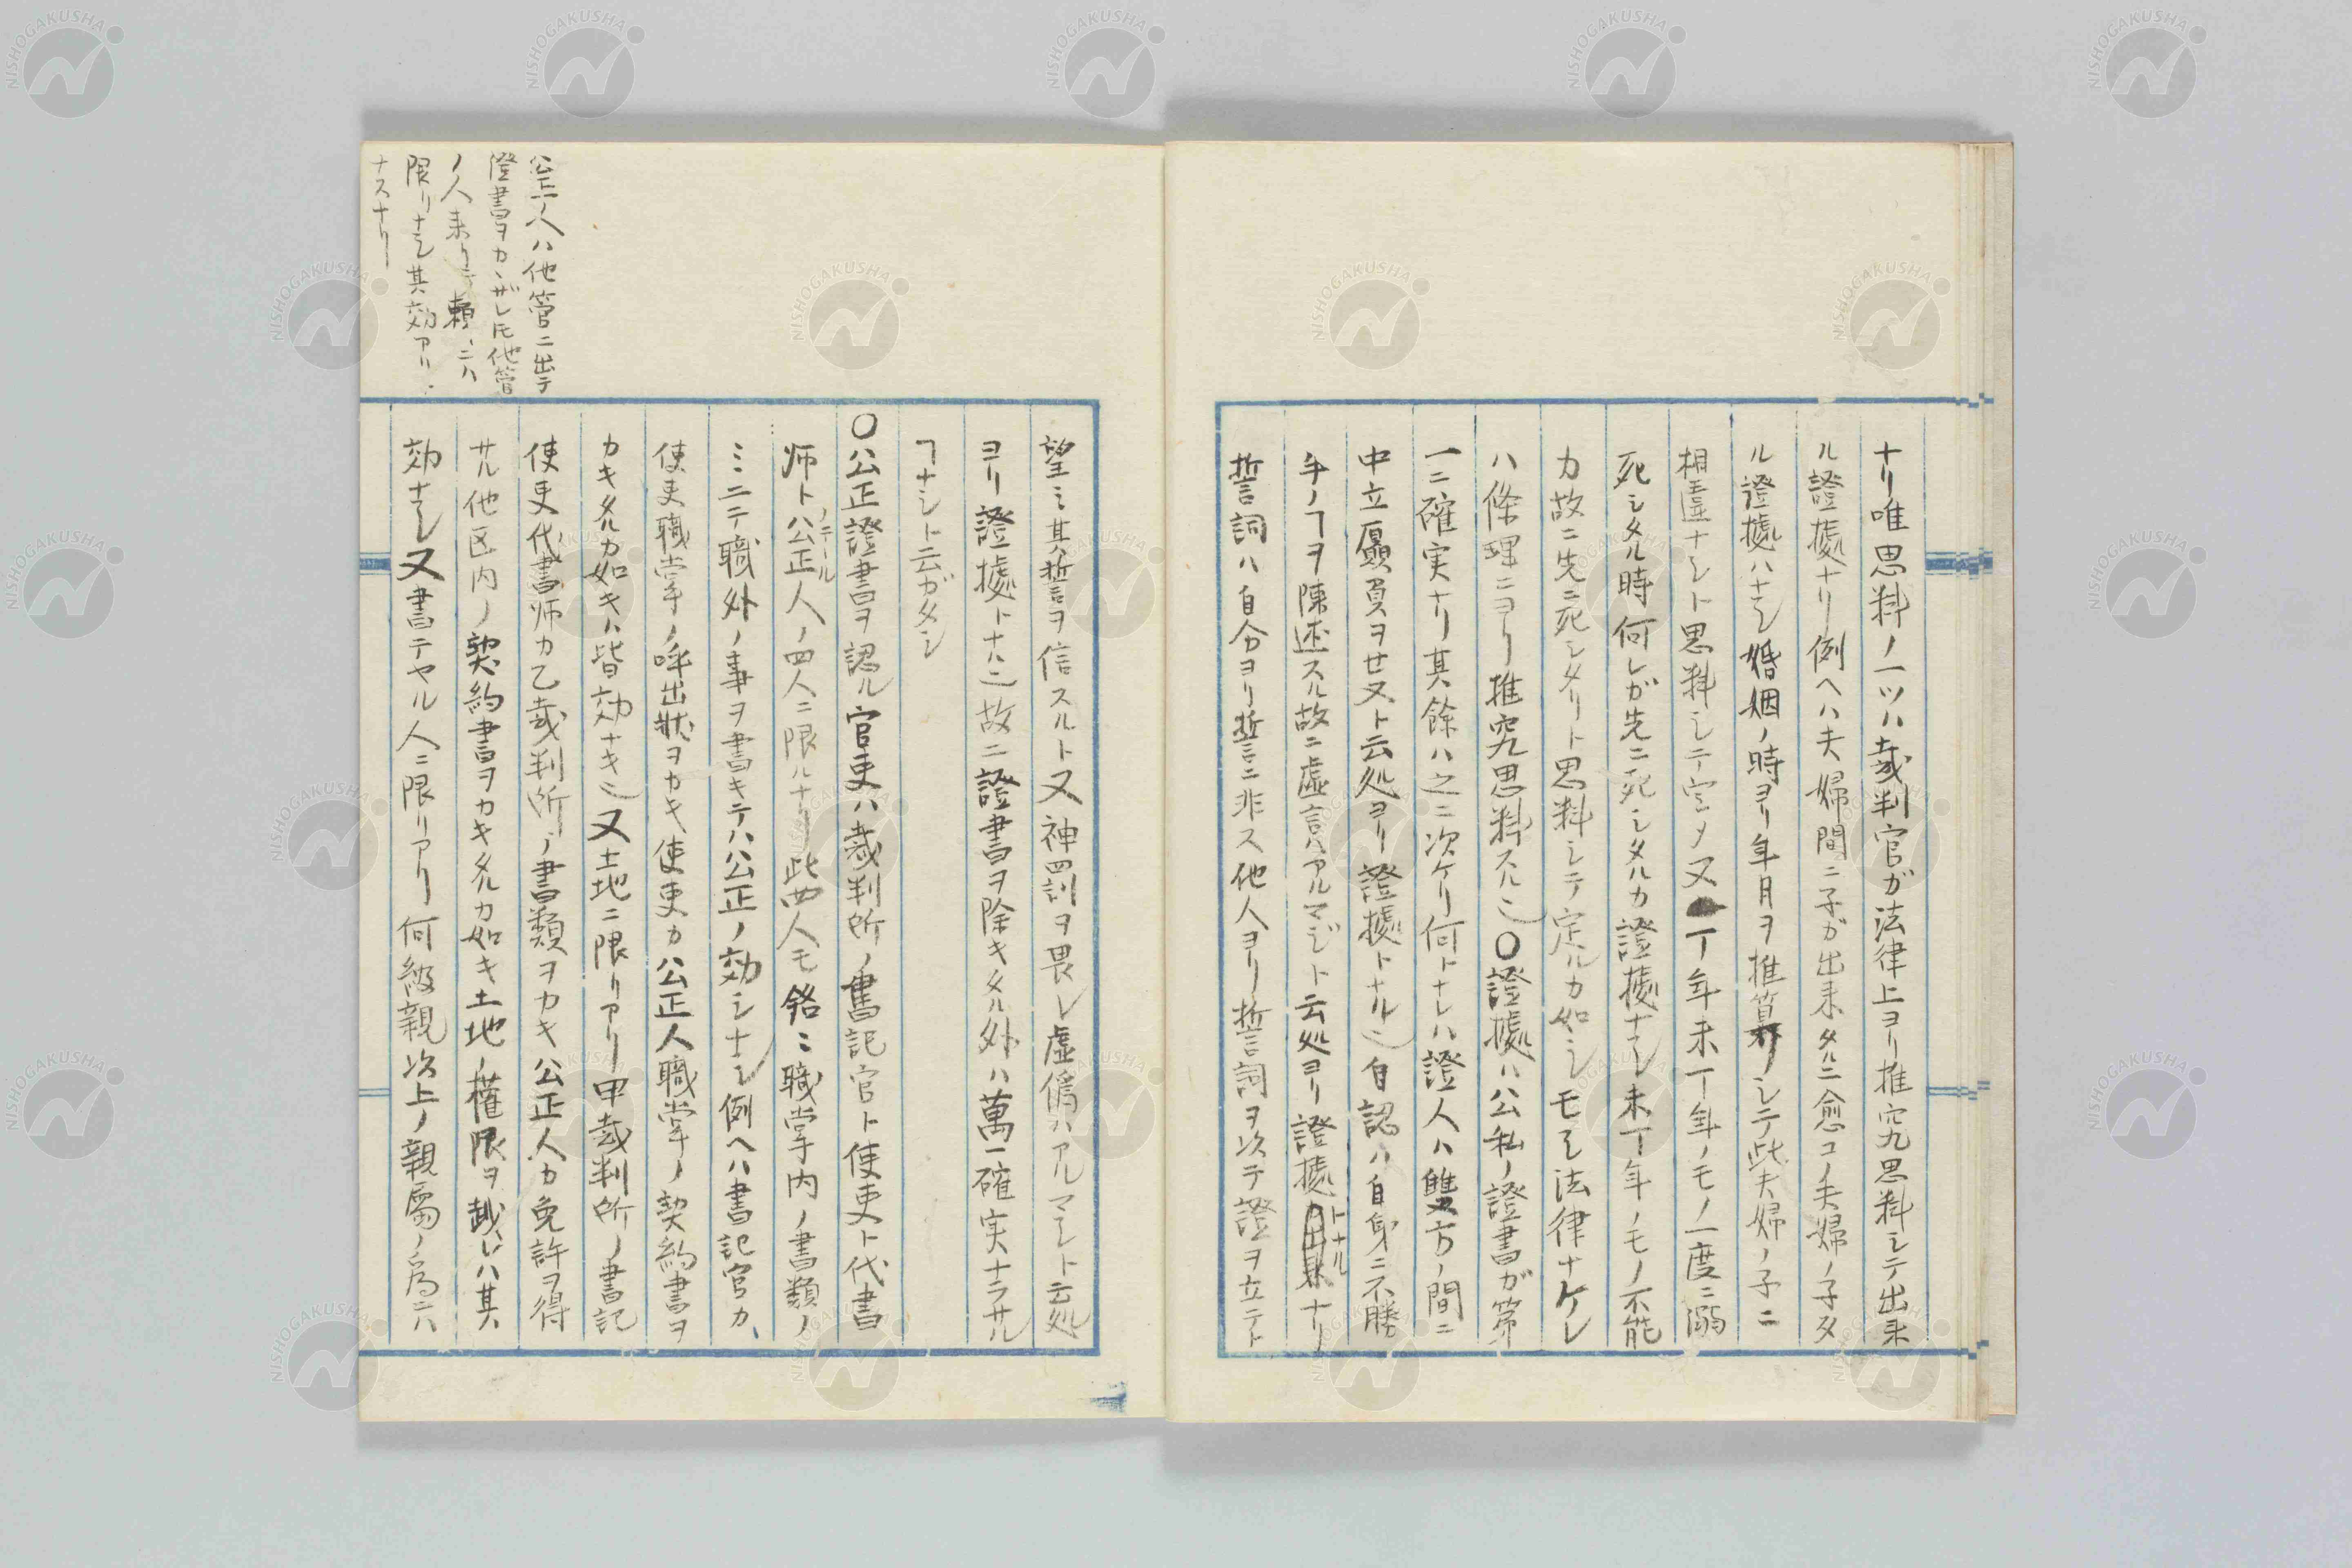 ナリ唯思料ノ一ツハ裁判官ガ法律上ヨリ推究思料シテ出来
ル證據ナリ例ヘハ夫婦間ニ子ガ出来タルニ愈コノ夫婦ノ子タ
ル證據ハナシ婚姻ノ時ヨリ年月ヲ推算シテ此夫婦ノ子ニ
相違ナシト思料シテ定メ又丁年未丁年ノモノ一度ニ溺
死シタル時何レガ先ニ死シタルカ證據ナシ未丁年ノモノ不能
力故ニ先ニ死シタリト思料シテ定ルカ如シモシ法律ナケレ
ハ條理ニヨリ推究思料スル〇證據ハ公私ノ證書ガ第
一ニ確実ナリ其餘ハ之ニ次ケリ何トナレハ證人ハ雙方ノ間ニ
中立贔負ヲセヌト云処ヨリ證據トナル自認ハ自身ニ不勝
手ノヿヲ陳述スル故ニ虚言ハアルマジト云処ヨリ證據トナルナリ
誓詞ハ自分ヨリ誓ニ非ス他人ヨリ誓詞ヲ以テ證ヲ立テト
望ミ其誓ヲ信スルト又神罰ヲ畏レ虚偽ハアルマシト云処
ヨリ證據トナル故ニ證書ヲ除キタル外ハ萬一確実ナラサル
ヿナシト云ガタシ
〇公正證書ヲ認ル官吏ハ裁判所ノ書記官ト使吏ト代書
師ト公正人ノテールノ四人ニ限ルナリ此四人モ銘ミ職掌内ノ書類ノ
ミニテ職外ノ事ヲ書キテハ公正ノ効シナシ例ヘハ書記官カ
使吏職掌ノ呼出状ヲカキ使吏カ公正人職掌ノ契約書ヲ
カキタルカ如キハ皆効ナキ又土地ニ限リアリ甲裁判所ノ書記
使吏代書师カ乙裁判所ノ書類ヲカキ公正人カ免許ヲ得
サル他区内ノ契約書ヲカキタルカ如キ土地ノ權限ヲ越レハ其
効ナシ又書テヤル人ニ限リアリ何級親以上ノ親屬ノ為ニハ
公正人ハ他管ニ出テ
證書ヲカヽザレ𪜈他管
ノ人来リテ頼ミニハ
限リナシ其効アリ
ナスナリ